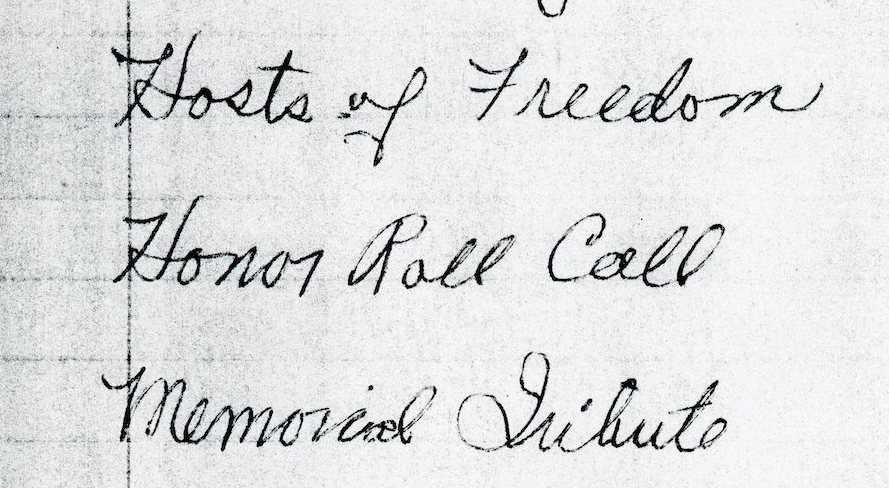 Hosts of Freedom
Honor Roll Call
Memorial Tribute